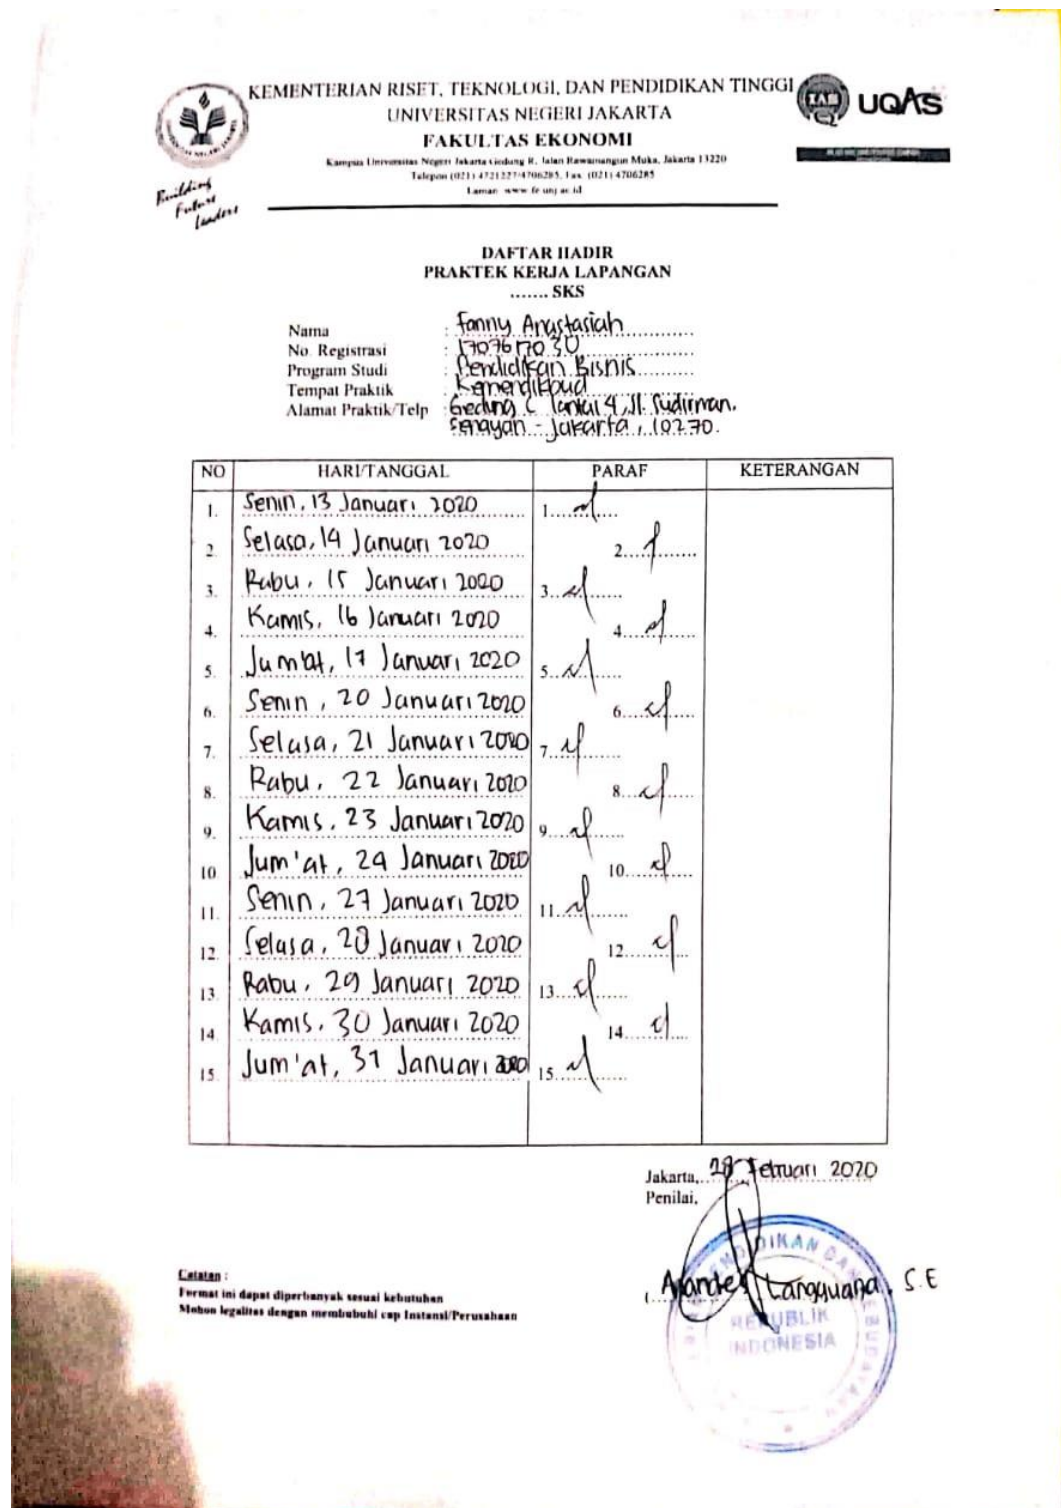 KEMENTERIAN RISET, TEKNOLOGI, DAN PENDIDIKAN TINGGI
UNIVERSITAS NEGERI JAKARTA
FAKULTAS EKONOMI
Kampus Universitas Negeri Jakarta Gedung R, Jalan Rawamangun Muka, Jakarta 13220
Telepon (021) 4721227/4706285, Fax. (021) 4706285
Laman: www.fe.unj.ac.id
Building
Future
Leaders
UQAS
DAFTAR HADIR
PRAKTEK KERJA LAPANGAN
....... SKS
Nama : Fanny Anastasiah
No. Registrasi : 1707617030
Program Studi : Pendidikan Bisnis
Tempat Praktik : Kemendikbud
Alamat Praktik/Telp : Gedung C lantai 4, Jl. Sudirman.
Senayan - Jakarta, 10270.
NO HARI/TANGGAL PARAF KETERANGAN
1. Senin, 13 Januari 2020 1.
2. Selasa, 14 Januari 2020 2.
3. Rabu, 15 Januari 2020 3.
4. Kamis, 16 Januari 2020 4.
5. Jum'at, 17 Januari 2020 5.
6. Senin, 20 Januari 2020 6.
7. Selasa, 21 Januari 2020 7.
8. Rabu, 22 Januari 2020 8.
9. Kamis, 23 Januari 2020 9.
10. Jum'at, 24 Januari 2020 10.
11. Senin, 27 Januari 2020 11.
12. Selasa, 28 Januari 2020 12.
13. Rabu, 29 Januari 2020 13.
14. Kamis, 30 Januari 2020 14.
15. Jum'at, 31 Januari 2020 15.
Jakarta, 28 Februari 2020
Penilai,
S.E
REPUBLIK
INDONESIA
Catatan :
Format ini dapat diperbanyak sesuai kebutuhan
Mohon legalitas dengan membubuhi cap Instansi/Perusahaan